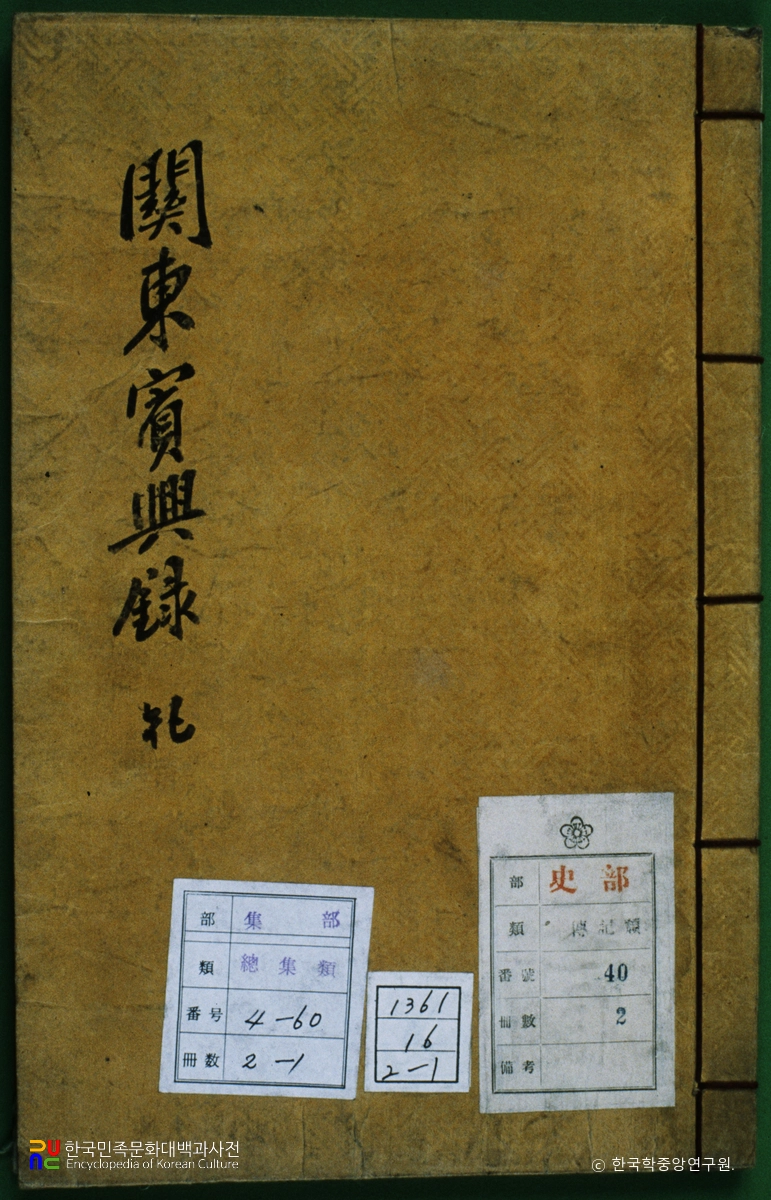 關東賓興錄 乾
部 集部
類 總集類
番号 4-60
冊数 2-1
1361
16
2-1
部 史部
類 傳記類
番號 40
冊數 2
備考
한국민족문화대백과사전
Encyclopedia of Korean Culture
© 한국학중앙연구원.